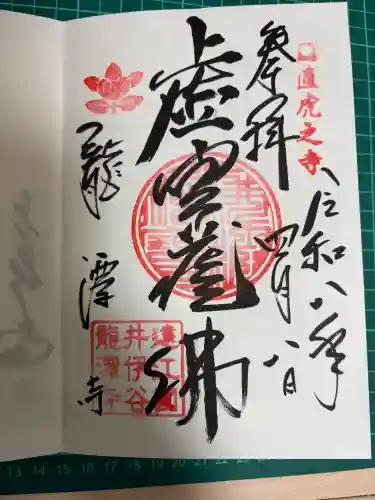 直虎之寺
令和八年
四月八日
奉拝
虚空蔵佛
龍潭寺
遠江國
井伊谷
龍潭寺
13 14 15 16 17 18 19 20 21 22 23